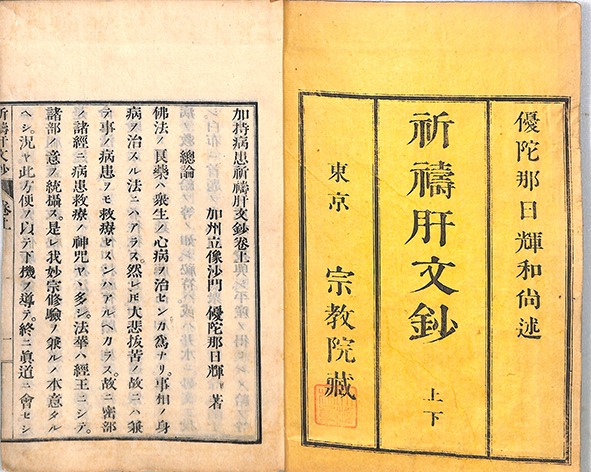 優陀那日輝和尚述
祈禱肝文鈔 上下
東京 宗教院藏
加持病患祈禱肝文鈔卷上
總論
加州立像沙門 優陀那日輝 著
佛法ノ良藥ハ衆生ノ心病ヲ治センカ爲ナリ。事相ノ身
病ヲ治スル法ニハアラス。然レ𪜈大悲拔苦ノ故ニハ兼
テ事ノ病患ヲモ救療セスンハアルヘカラス。故ニ密部
ノ諸經ニ病患救療ノ神咒ヤヽ多シ。法華ハ經王ニシテ。
諸部ノ意ヲ統攝ス。是レ我妙宗修驗ヲ兼ルノ本意タル
ヘシ。況ヤ此方便ヲ以テ下機ヲ導テ。終ニ眞道ニ會セシ
祈禱肝文鈔 卷上 一